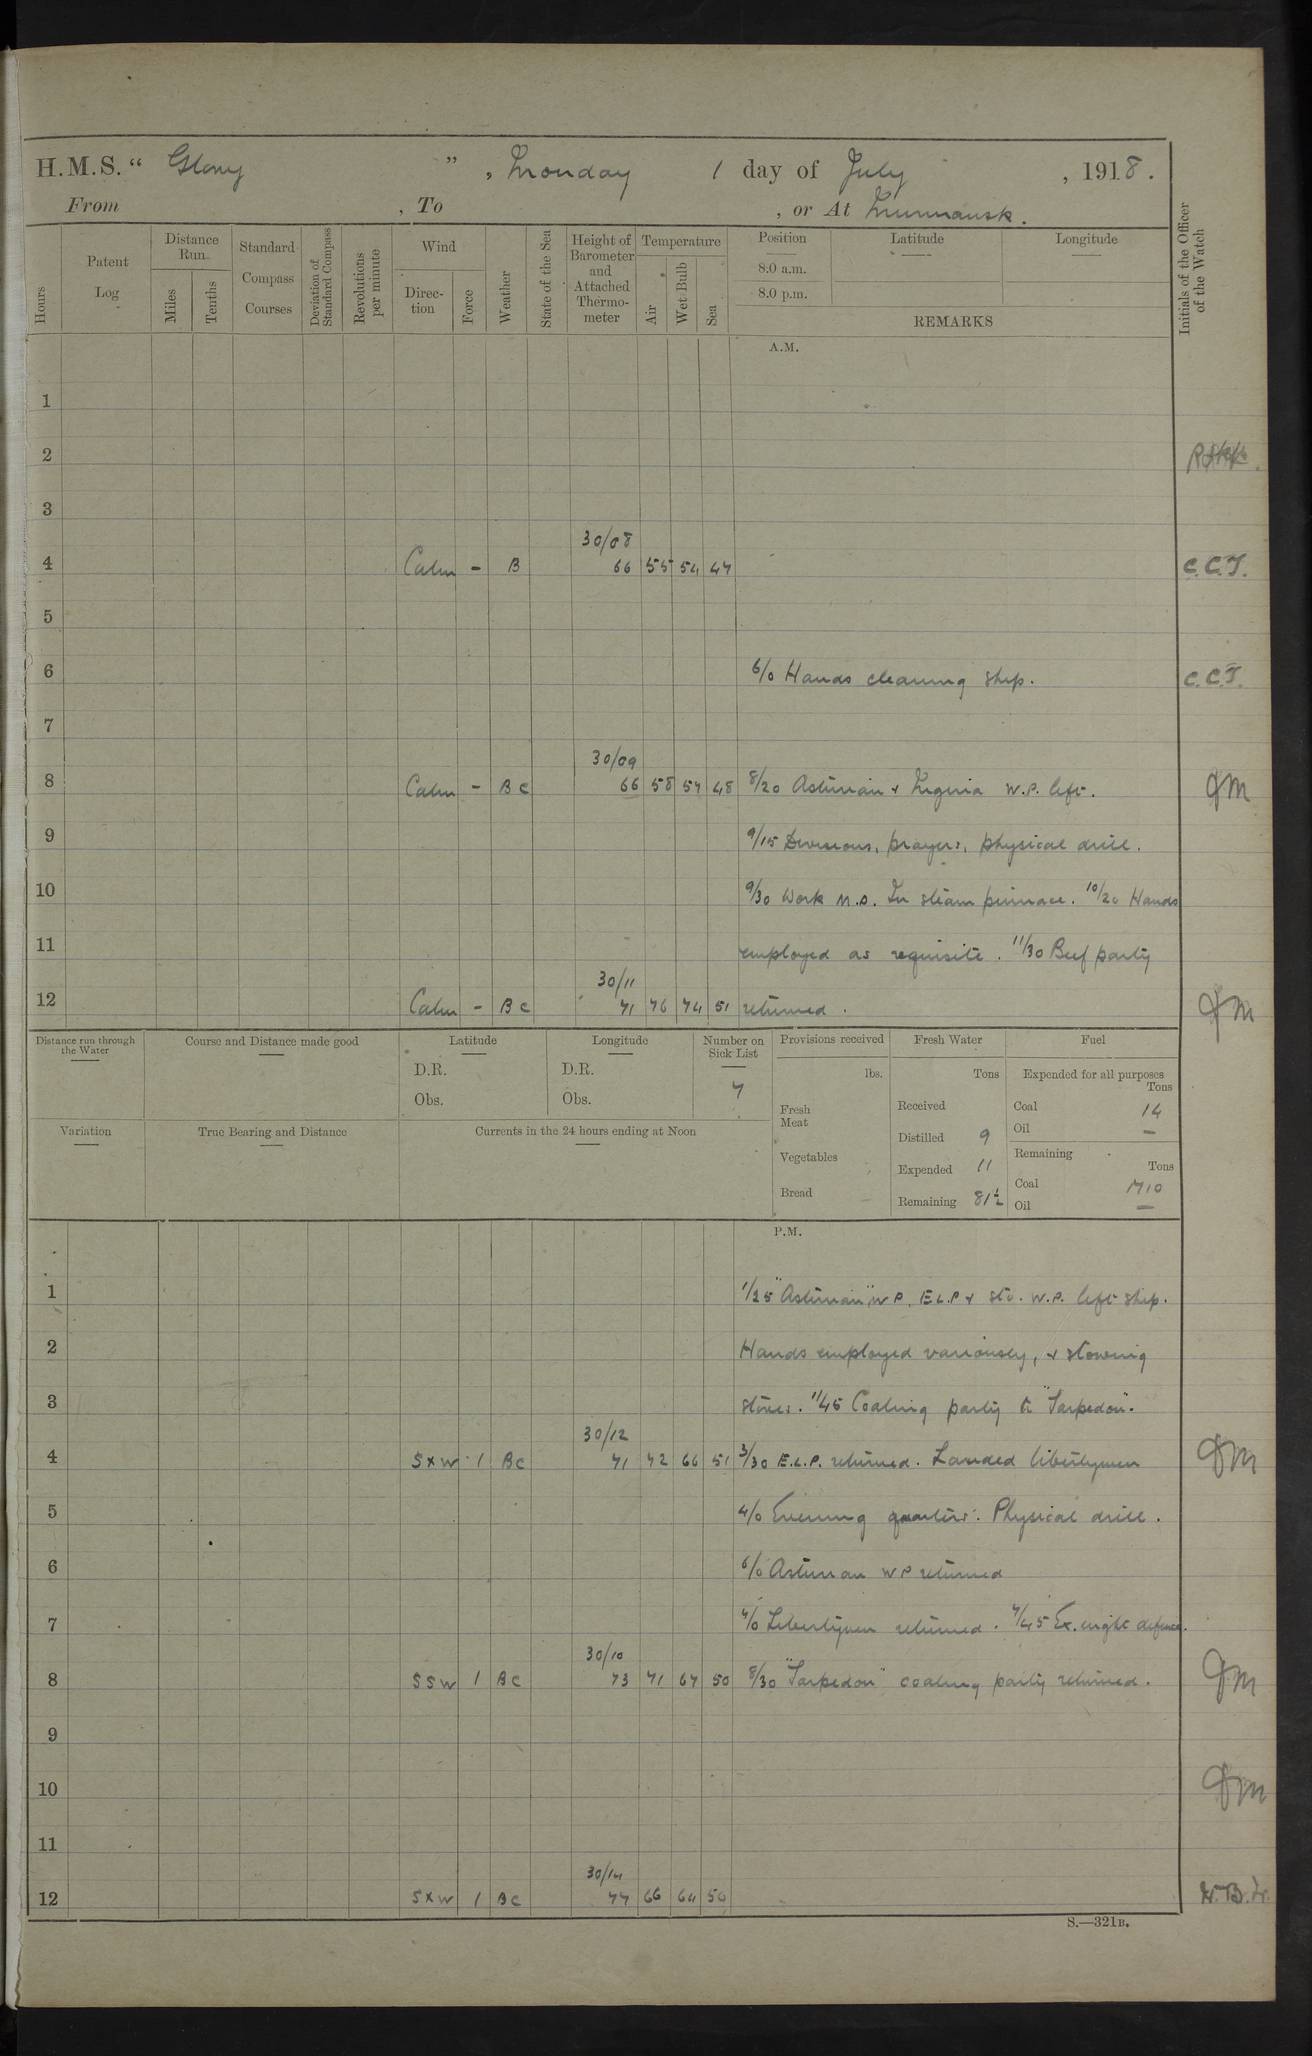 H.M.S. “ Glory ” , Monday 1 day of July , 1918.
From , To , or At Murmansk.
Hours
Patent Log
Distance Run.
Miles
Tenths
Standard Compass Courses
Deviation of Standard Compass
Revolutions per minute
Wind
Direction
Force
Weather
State of the Sea
Height of Barometer and Attached Thermometer
Temperature
Air
Wet Bulb
Sea
Position
8.0 a.m.
8.0 p.m.
Latitude
Longitude
REMARKS
Initials of the Officer of the Watch
A.M.
1
2
3
30/08
4 Calm - B 66 55 54 47 C.C.T.
5
6 6/0 Hands cleaning ship. C.C.T.
7
30/09
8 Calm - BC 66 58 54 48 8/20 Asturian + Nigeria W.P. left. JM
9 9/15 Divisions, prayers, physical drill.
10 9/30 Work M.D. In steam pinnace. 10/20 Hands
11 employed as requisite. 11/30 Beef party
30/11
12 Calm - BC 71 76 74 51 returned. JM
Distance run through the Water
Course and Distance made good
Latitude
D.R.
Obs.
Longitude
D.R.
Obs.
Number on Sick List
7
Provisions received
lbs.
Fresh Meat
Vegetables
Bread
Fresh Water
Tons
Received
Distilled 9
Expended 11
Remaining 81½
Fuel
Expended for all purposes
Tons
Coal 14
Oil —
Remaining
Tons
Coal 1710
Oil —
Variation
True Bearing and Distance
Currents in the 24 hours ending at Noon
P.M.
1 1/25 "Asturian" W.P. E.L.P + Sto. W.P. left ship.
2 Hands employed variously, + stowing
3 stores. 1/45 Coaling party to "Sarpedon".
30/12
4 SxW 1 BC 71 72 66 51 3/30 E.L.P. returned. Landed libertymen JM
5 4/0 Evening quarters. Physical drill.
6 6/0 Asturian WP returned
7 7/0 Libertymen returned. 7/45 Ex. night defence.
30/10
8 SSW 1 BC 73 71 67 50 8/30 "Sarpedon" coaling party returned. JM
9
10 JM
11
30/14
12 SxW 1 BC 77 66 64 50
S.—321B.